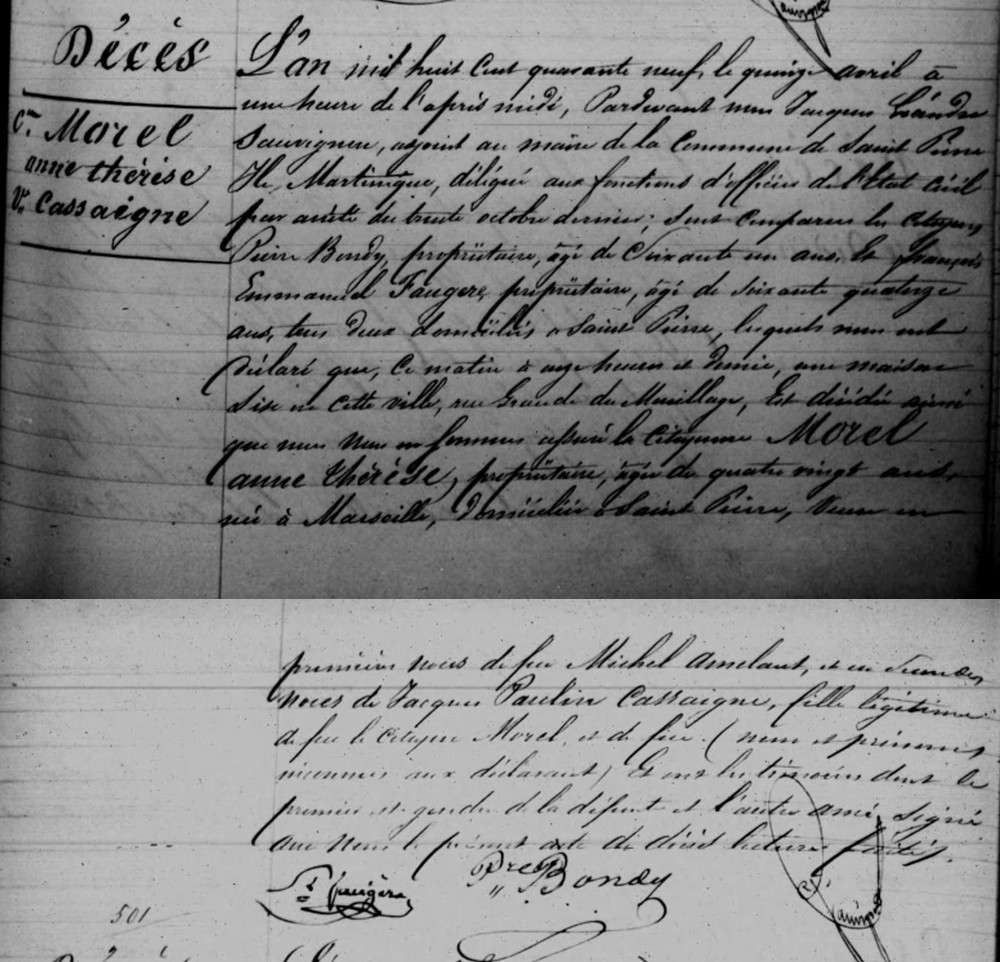 Décès
cne Morel
anne thérèse
Ve Cassaigne
L'an mil huit cent quarante neuf, le quinze avril à
une heure de l'après midi, Pardevant nous Jacques Léandre
Sauvignon, adjoint au maire de la Commune de Saint Pierre
Ile Martinique, délégué aux fonctions d'officier de l'État civil
par arrêté du trente octobre dernier; sont comparus les citoyens
Pierre Bondy, propriétaire, âgé de soixante un ans, Et françois
Emmanuel Faugere, propriétaire, âgé de soixante quatorze
ans, tous deux domiciliés à Saint Pierre, lesquels nous ont
déclaré que, ce matin à onze heures et demie, une maison
sise en cette ville, rue Grande du Mouillage, Est décédée ainsi
que nous nous en sommes assuré la Citoyenne Morel
anne thérèse, propriétaire, âgée de quatre vingt ans,
née à Marseille, domiciliée à Saint Pierre, Veuve en
premières noces de feu Michel Amelant, et en secondes
noces de Jacques Paulin Cassaigne, fille légitime
de feu le citoyen Morel, et de feue (nom et prénoms
inconnus aux déclarant) Et ont les témoins dont le
premier est gendre de la défunte et l'autre ami, signé
avec nous le présent acte de décès lecture faite.
Faugère
Pre Bondy
501